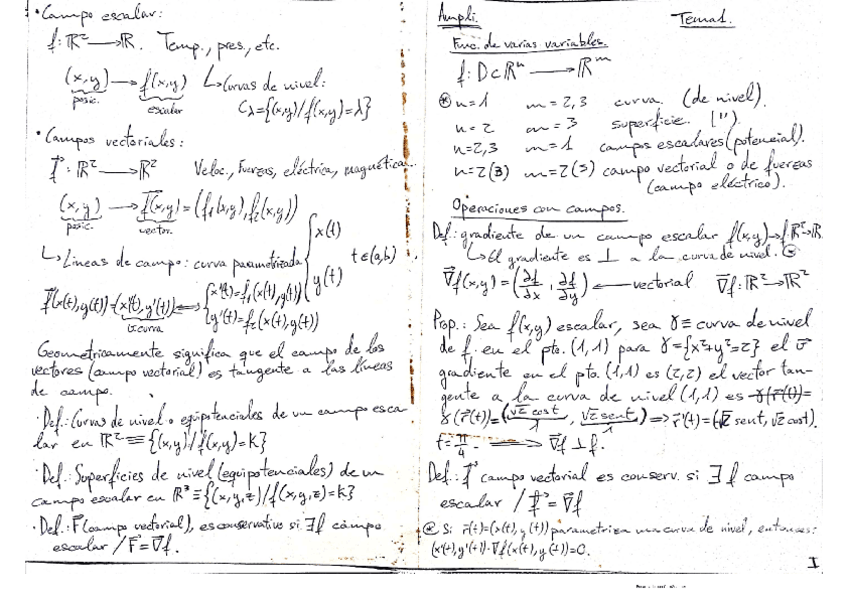 • Campo escalar:
f: ℝ² ⟶ ℝ. Temp., pres., etc.
(x,y) ⟶ f(x,y) ↳ Curvas de nivel:
posic. escalar C_λ = {(x,y)/f(x,y)=λ}
• Campos vectoriales:
f⃗: ℝ² ⟶ ℝ² Veloc., fuerzas, eléctrica, magnética...
(x,y) ⟶ f⃗(x,y) = (f₁(x,y), f₂(x,y))
posic. vector.
↳ Líneas de campo: curva parametrizada { x(t) y(t) t∈(a,b)
f⃗(x(t),y(t)) = (x'(t),y'(t)) ⟺ { x'(t)=f₁(x(t),y(t))
y'(t)=f₂(x(t),y(t))
Geométricamente significa que el campo de los
vectores (campo vectorial) es tangente a las líneas
de campo.
· Def.: Curvas de nivel o equipotenciales de un campo esca
lar en ℝ² ≡ {(x,y)/f(x,y)=K}
· Def.: Superficies de nivel (equipotenciales) de un
campo escalar en ℝ³ ≡ {(x,y,z)/f(x,y,z)=k}
· Def.: F⃗ (campo vectorial), es conservativo si ∃f campo
escalar / F⃗ = ∇⃗f.
Ampli. Tema 1.
Func. de varias variables.
f: D⊂ℝⁿ ⟶ ℝᵐ
⊛ n=1 m=2,3 curva. (de nivel).
n=2 m=3 superficie. (").
n=2,3 m=1 campos escalares (potencial).
n=2(3) m=2(3) campo vectorial o de fuerzas
(campo eléctrico).
Operaciones con campos.
Def.: gradiente de un campo escalar f(x,y)→f:ℝ²→ℝ
↳ El gradiente es ⊥ a la curva de nivel. ⊛
∇⃗f(x,y) = (∂f/∂x, ∂f/∂y) ⟵ vectorial ∇⃗f: ℝ²⟶ℝ²
Prop.: Sea f(x,y) escalar, sea γ ≡ curva de nivel
de f. en el pto. (1,1) para γ={x²+y²=2} el v⃗
gradiente en el pto. (1,1) es (2,2) el vector tan-
gente a la curva de nivel (1,1) es γ(r⃗(t))=
γ(r⃗(t))=(√2 cos t, √2 sen t) ⟹ r⃗'(t)=(√2 sent, √2 cost).
t=π/4. ⟹ ∇⃗f ⊥ f.
Def.: f⃗ campo vectorial es conserv. si ∃ f campo
escalar / f⃗ = ∇⃗f
⊛ Si r⃗(t)=(x(t), y(t)) parametriza una curva de nivel, entonces:
(x'(t),y'(t))·∇⃗f(x(t),y(t))=0.
I